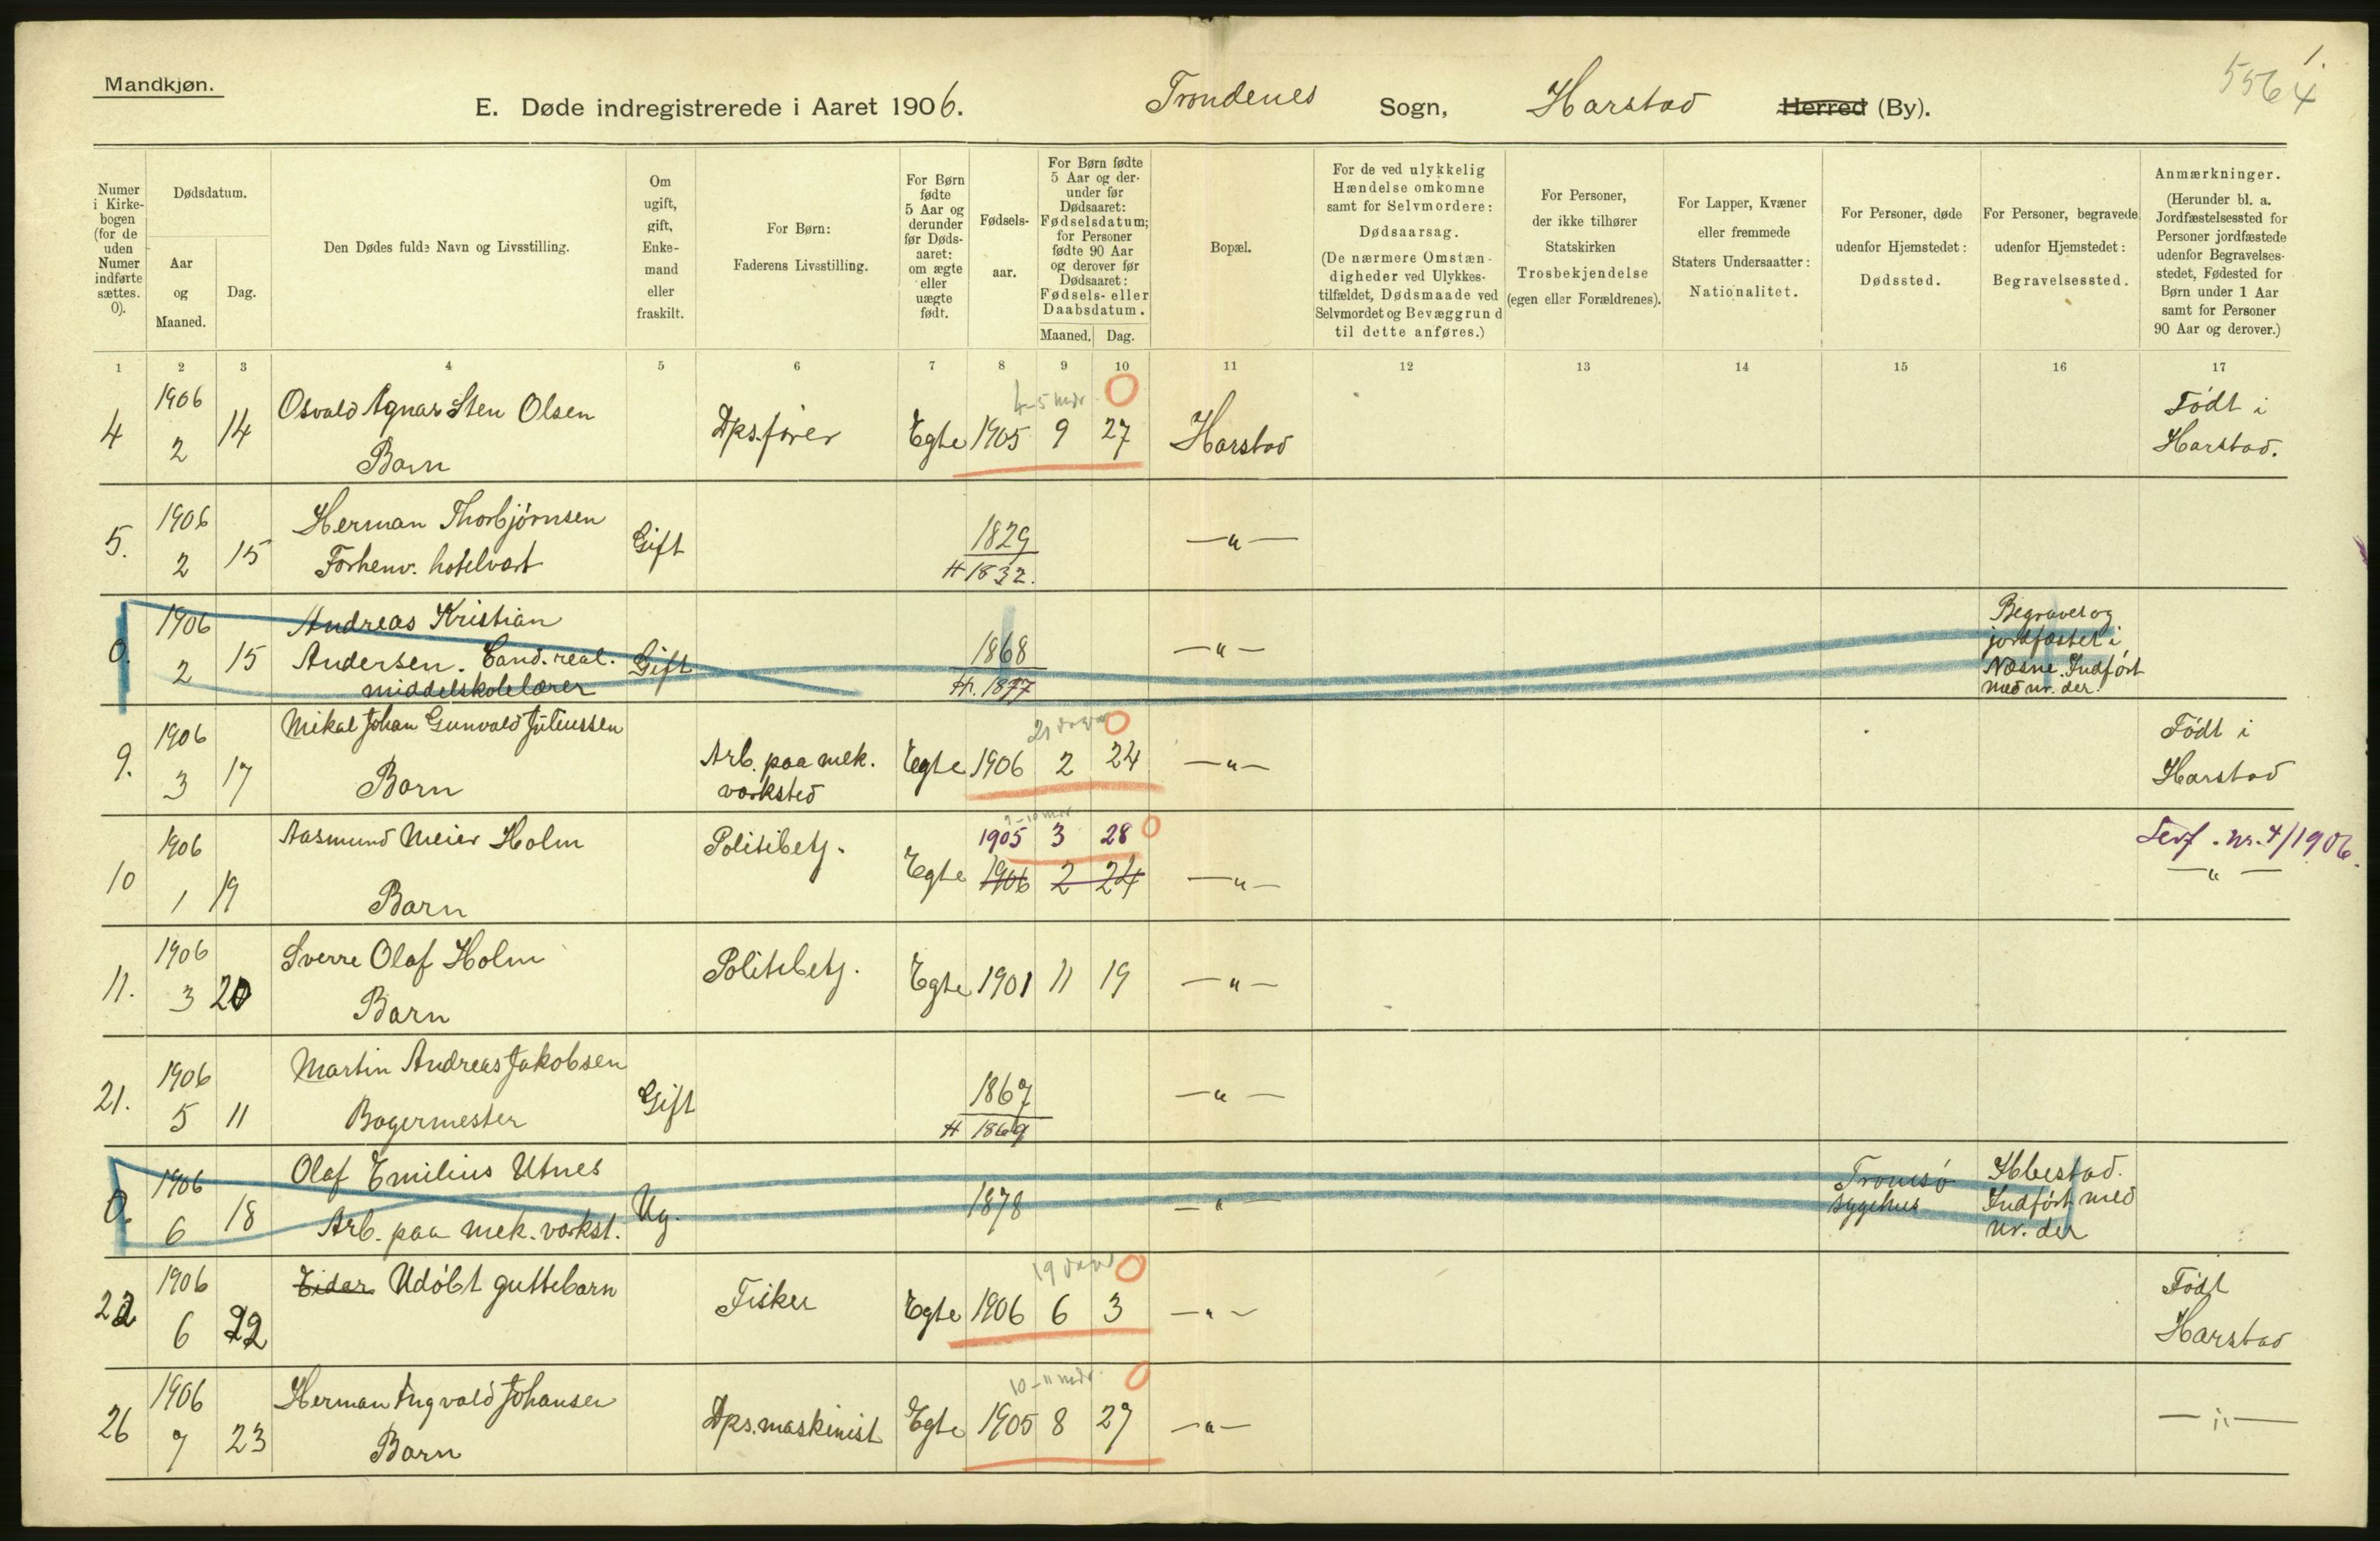 Mandkjøn.
5564
1
E. Døde indregistrerede i Aaret 1906. Trondenes Sogn, Harstad Herred (By).
Numer i Kirkebogen (for de uden Numer indførte sættes. 0).
Dødsdatum.
Aar og Maaned.
Dag.
Den Dødes fulde Navn og Livsstilling.
Om ugift, gift, Enkemand eller fraskilt.
For Børn: Faderens Livsstilling.
For Børn fødte 5 Aar og derunder før Dødsaaret: om ægte eller uægte født.
Fødselsaar.
For Børn fødte 5 Aar og derunder før Dødsaaret: Fødselsdatum; for Personer fødte 90 Aar og derover før Dødsaaret: Fødsels- eller Daabsdatum.
Maaned. Dag.
Bopæl.
For de ved ulykkelig Hændelse omkomne samt for Selvmordere: Dødsaarsag. (De nærmere Omstændigheder ved Ulykkestilfældet, Dødsmaade ved Selvmordet og Bevæggrund til dette anføres.)
For Personer, der ikke tilhører Statskirken Trosbekjendelse (egen eller Forældrenes).
For Lapper, Kvæner eller fremmede Staters Undersaatter: Nationalitet.
For Personer, døde udenfor Hjemstedet: Dødssted.
For Personer, begravede udenfor Hjemstedet: Begravelsessted.
Anmærkninger. (Herunder bl. a. Jordfæstelsessted for Personer jordfæstede udenfor Begravelsesstedet, Fødested for Børn under 1 Aar samt for Personer 90 Aar og derover.)
1 2 3 4 5 6 7 8 9 10 11 12 13 14 15 16 17
4 1906 2 14 Osvald Agnar Sten Olsen
Barn
Dps.fører Egte 1905 9 27 Harstad
4-5 mdr. 0
Født i
Harstad.
5. 1906 2 15 Herman Thorbjørnsen
Forhenv. hotelvært
Gift 1829 —"—
H 1832.
0. 1906 2 15 Andreas Kristian
Andersen. Cand. real.
middelskolelærer
Gift 1868 —"—
H. 1877
Begravet og
jordfæstet i
Næsne. Indført
med nr. der.
9. 1906 3 17 Mikal Johan Gunvald Juliussen
Barn
Arb. paa mek.
værksted
Egte 1906 2 24 —"—
21 dager 0
Født i
Harstad
10 1906 1 19 Aasmund Meier Holm
Barn
Politibetj.
9-10 mdr.
1905 3 28 0
Egte 1906 2 24 —"—
Levf. nr. 4/1906.
—"—
11. 1906 3 20 Sverre Olaf Holm
Barn
Politibetj. Egte 1901 11 19 —"—
21. 1906 5 11 Martin Andreas Jakobsen
Bagermester
Gift 1867 —"—
H 1869
0. 1906 6 18 Olaf Emilius Utnes
Arb. paa mek. værkst.
Ug. 1878 —"—
Tromsø
sygehus
Ibbestad.
Indført med
nr. der
22 1906 6 22 Eidar Udøbt guttebarn
Fisker Egte 1906 6 3 —"—
19 dage 0
Født
Harstad
26 1906 7 23 Herman Ingvald Johansen
Barn
Dps.maskinist Egte 1905 8 27 —"—
10-11 mdr. 0
—"—